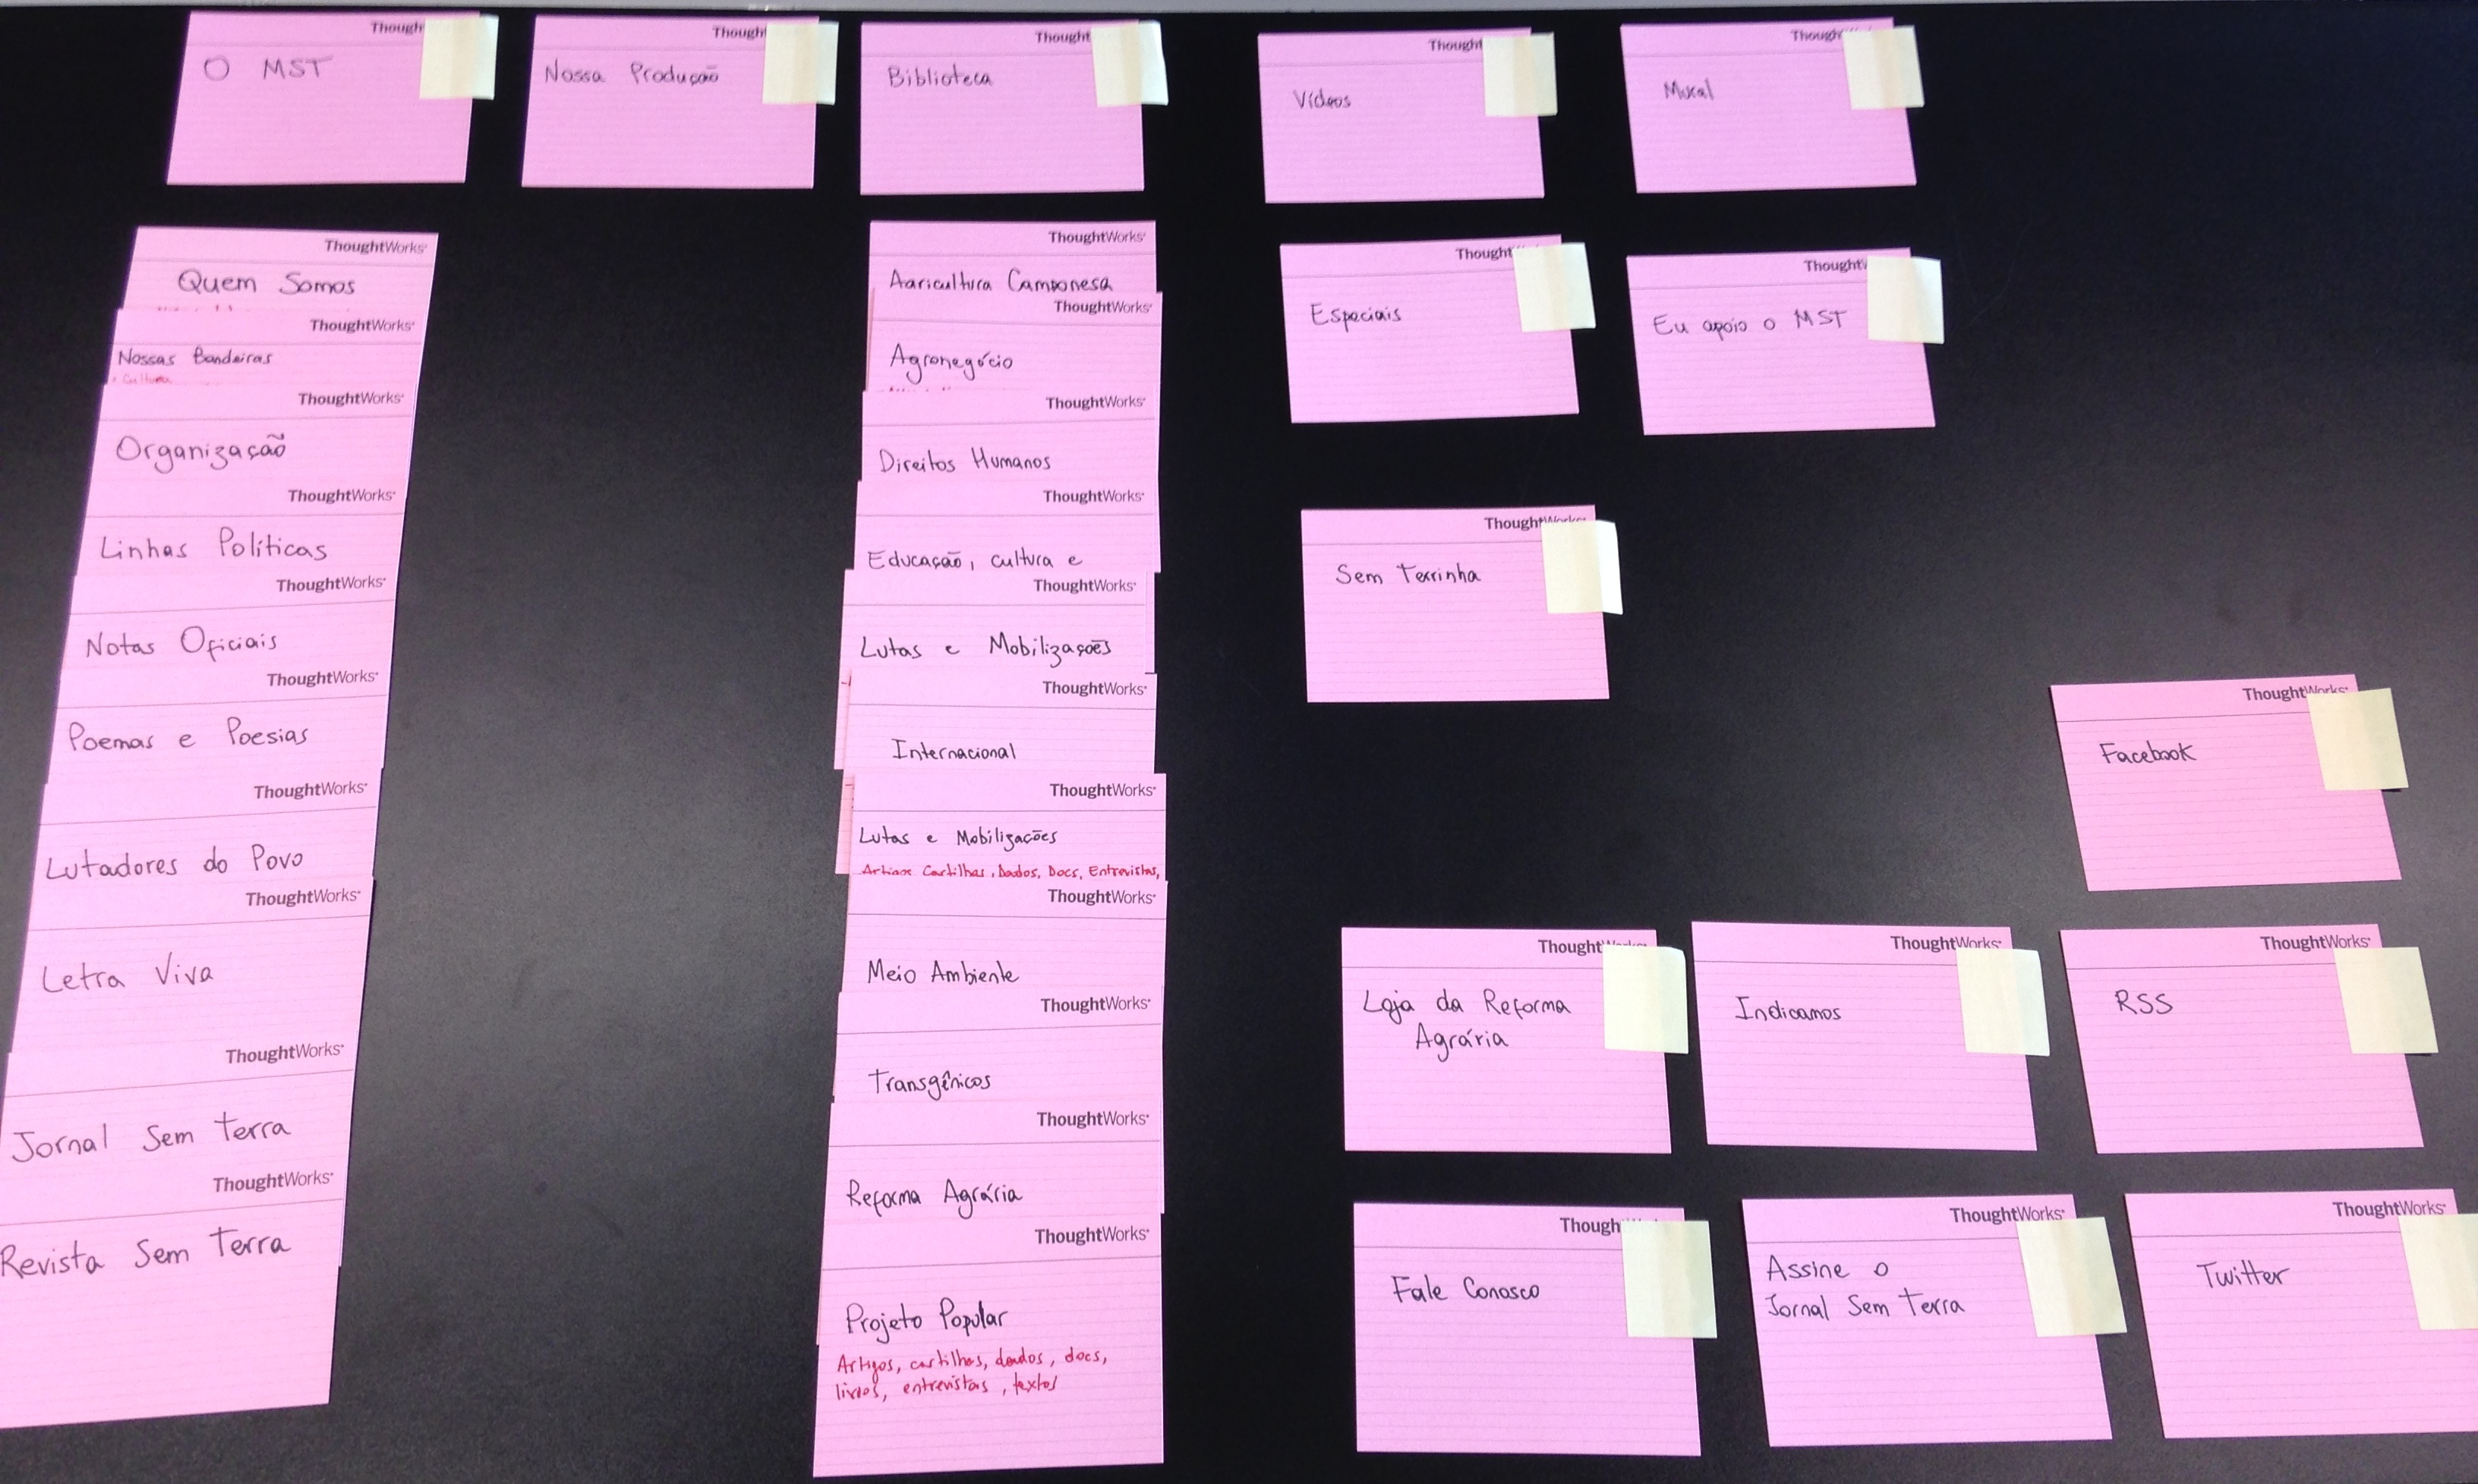 Though
O MST
Though
Nossa Produção
Thought
Biblioteca
Thought
Vídeos
Though
Mural
ThoughtWorks
Quem Somos
ThoughtWorks
Nossas Bandeiras
Cultura
ThoughtWorks
Organização
ThoughtWorks
Linhas Políticas
ThoughtWorks
Notas Oficiais
ThoughtWorks
Poemas e Poesias
ThoughtWorks
Lutadores do Povo
ThoughtWorks
Letra Viva
ThoughtWorks
Jornal Sem Terra
ThoughtWorks
Revista Sem Terra
ThoughtWorks
Agricultura Camponesa
ThoughtWorks
Agronegócio
ThoughtWorks
Direitos Humanos
ThoughtWorks
Educação, cultura e
ThoughtWorks
Lutas e Mobilizações
ThoughtWorks
Internacional
ThoughtWorks
Lutas e Mobilizações
Artigos Cartilhas, Dados, Docs, Entrevistas,
ThoughtWorks
Meio Ambiente
ThoughtWorks
Transgênicos
ThoughtWorks
Reforma Agrária
ThoughtWorks
Projeto Popular
Artigos, cartilhas, dados, docs,
livros, entrevistas, textos
Thought
Especiais
Thought
Eu apoio o MST
ThoughtWorks
Sem Terrinha
ThoughtWorks
Facebook
ThoughtWorks
Loja da Reforma
Agrária
ThoughtWorks
Indicamos
ThoughtWorks
RSS
Though
Fale Conosco
ThoughtWorks
Assine o
Jornal Sem Terra
ThoughtWorks
Twitter